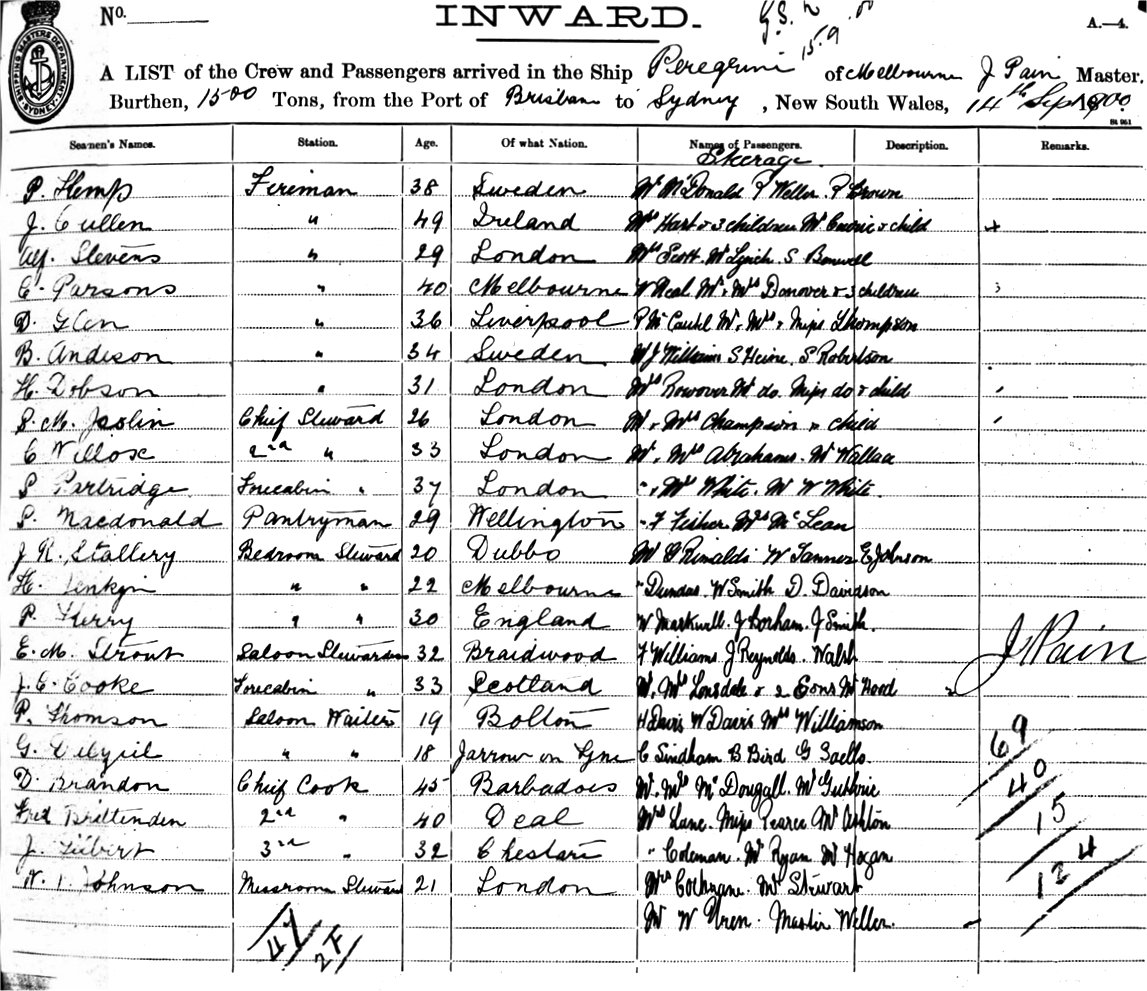 No. INWARD. A.—4.
SHIPPING MASTERS DEPARTMENT SYDNEY
15.9
A LIST of the Crew and Passengers arrived in the Ship Peregrine of Melbourne J Pain Master.
Burthen, 1500 Tons, from the Port of Brisbane to Sydney, New South Wales, 14th Sept 1900.
St 951
Seamen's Names. Station. Age. Of what Nation. Names of Passengers. Description. Remarks.
Steerage.
P. Hemp Fireman 38 Sweden Mr McDonald P Weller P Brown
J. Cullen " 49 Ireland Mrs Hart & 3 children Mr & child
Alf. Stevens " 29 London Mrs Scott. Mr Lynch. S
C. Parsons " 40 Melbourne W Neal. Mr & Mrs Donover & 3 children
D. Glen " 36 Liverpool P Mr & Mrs & Miss Thompson
B. Andison " 34 Sweden W J Williams S Heine. S Robertson
H. Dobson " 31 London Mrs Mr do. Miss do & child
S. M. Joslin Chief Steward 26 London Mr & Mrs Champion & child
C Willox 2nd " 33 London Mr & Mrs Abrahams. Mr Wallace
S Partridge Forecabin " 37 London " & Mrs White. Mr W White.
P. Macdonald Pantryman 29 Wellington " F Fisher Mrs McLean
J. R. Stallery Bedroom Steward 20 Dubbo Mr G Rinaldi W Tanner E Johnson
H. Jenkyn " " 22 Melbourne " Dundas. W Smith D. Davidson
P. Therry " " 30 England W Markwell. J Borham. J Smith.
E. M. Strout Saloon Stewardess 32 Braidwood F Williams J Reynolds. Walsh
J Pain
J. C. Cooke Forecabin " 33 Scotland Mr & Mrs Lonsdale & 2 Sons Mr Hood 2
P. Thomson Saloon Waiter 19 Bolton H Davis W Davis Mrs Williamson
G. " " 18 Jarrow on Tyne C Sindham B Bird G
69
D. Brandon Chief Cook 45 Barbadoes Mr & Mrs McDougall. Mr Guthrie
40
Fred Brittenden 2nd " 40 Deal Mrs Lane. Miss Pearce Mr Ashton
15
J. Filbert 3rd " 32 " Coleman. Mr Ryan Mr Hogan
124
W. T. Johnson Messroom Steward 21 London Mrs Cochrane. Mr Stewart
Mr W Uren. Master Weller.
47
2F